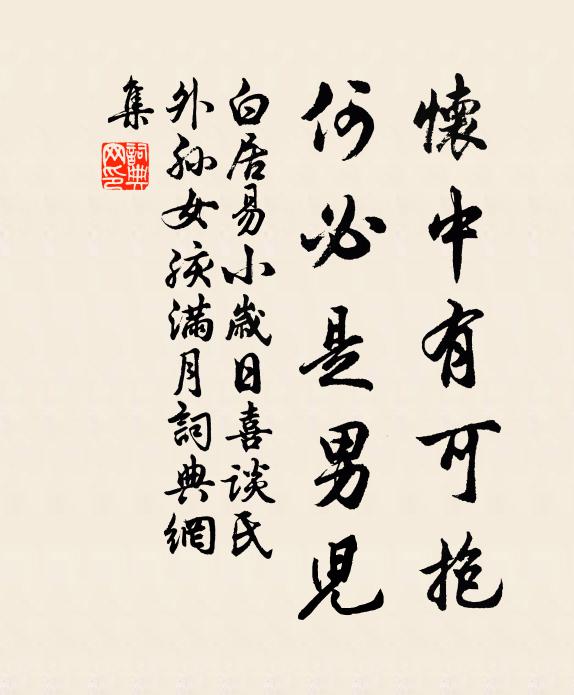 懷中有可抱
何必是男兒
白居易小歲日喜談氏
外孫女孩滿月詞典網
集
詞典
网印